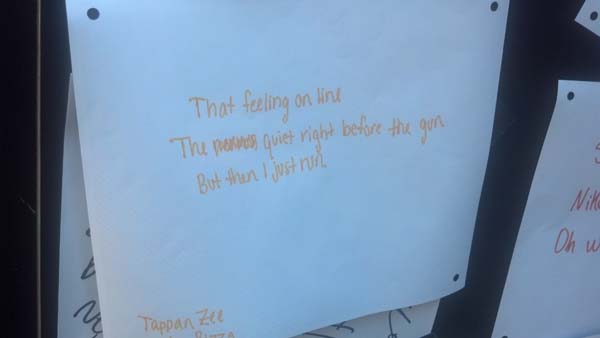 That feeling on line
The quiet right before the gun
But then I just run.
Tappan Zee
Pizza
Nik
Oh w